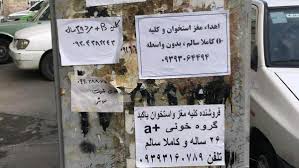 کلیه B+ مرد ۲۹ ساله
۰۹۳۰۴۳۸۹۲۴۳
اهداء مغز استخوان و کلیه
o+ کاملا سالم ، بدون واسطه
۰۹۳۹۳۰۶۴۴۹۴
فروشنده کلیه مغز واستخوان باکبد
گروه خونی a+
۲۶ ساله و کاملا سالم
تلفن ۰۹۳۹۳۱۶۰۷۸۹